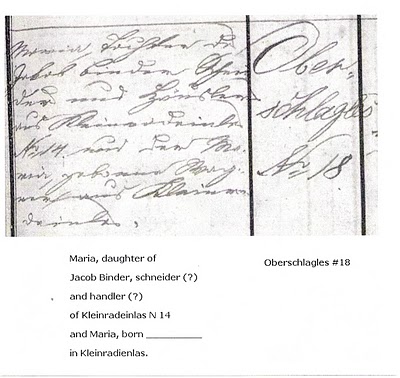 Maria, Tochter des
Jakob Binder, Schnei-
der und Häusler
aus Kleinradeinles
No 14, und der Ma-
ria, geborne
aus Kleinra-
deinles.
Ober-
schlagles
No 18
Maria, daughter of
Jacob Binder, schneider (?)
and handler (?)
of Kleinradeinlas N 14
and Maria, born ____________
in Kleinradienlas.
Oberschlagles #18